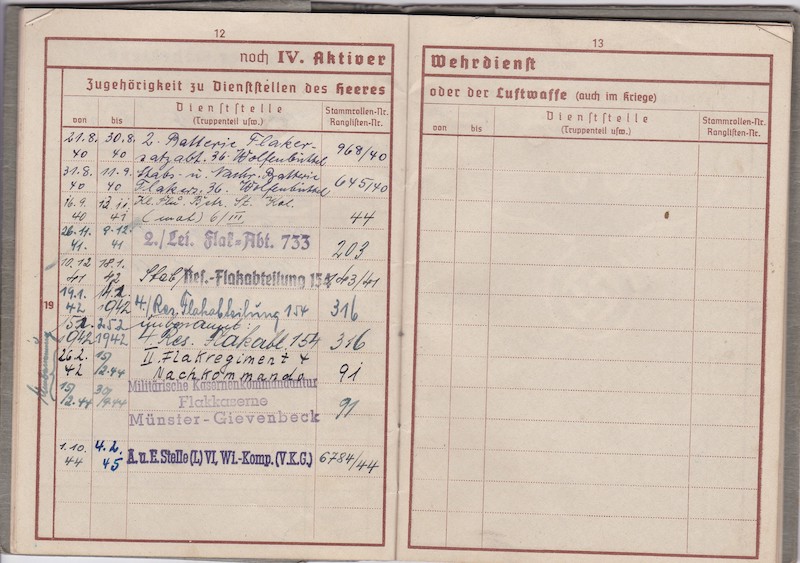 12
noch IV. Aktiver
Zugehörigkeit zu Dienststellen des Heeres
von bis Dienststelle (Truppenteil usw.) Stammrollen-Nr. Ranglisten-Nr.
21.8. 30.8. 2. Batterie Flaker-
40 40 satzabt. 36. Wolfenbüttel 968/40
31.8. 11.9. Stabs- u. Nachr. Batterie
40 40 Flakers. 36. Wolfenbüttel 645/40
16.9. 13.11. Kl. Flu. Betr. St. Kol.
40 41 (mot) 6/III 44
26.11. 9.12.
41. 41 2./Lei. Flak=Abt. 733 203
10.12. 18.1.
41 42 Stab/Res.-Flakabteilung 154 143/41
19.1. 4.2.
19 42 1942 4./Res. Flakabteilung 154 316
5.2. 25.2. umbenannt:
1942 1942 4. Res. Flakabt. 154 316
26.2. 15/ II. Flakregiment 4
42 2.44 Nachkommando 91
15/ 30/ Militärische Kasernenkommandantur
2.44 9.44 Flakkaserne 91
Münster-Gievenbeck
1.10. 4.2.
44 45 A. u. E. Stelle (L) VI, Wi.-Komp. (V.K.G.) 6784/44
13
Wehrdienst
oder der Luftwaffe (auch im Kriege)
von bis Dienststelle (Truppenteil usw.) Stammrollen-Nr. Ranglisten-Nr.